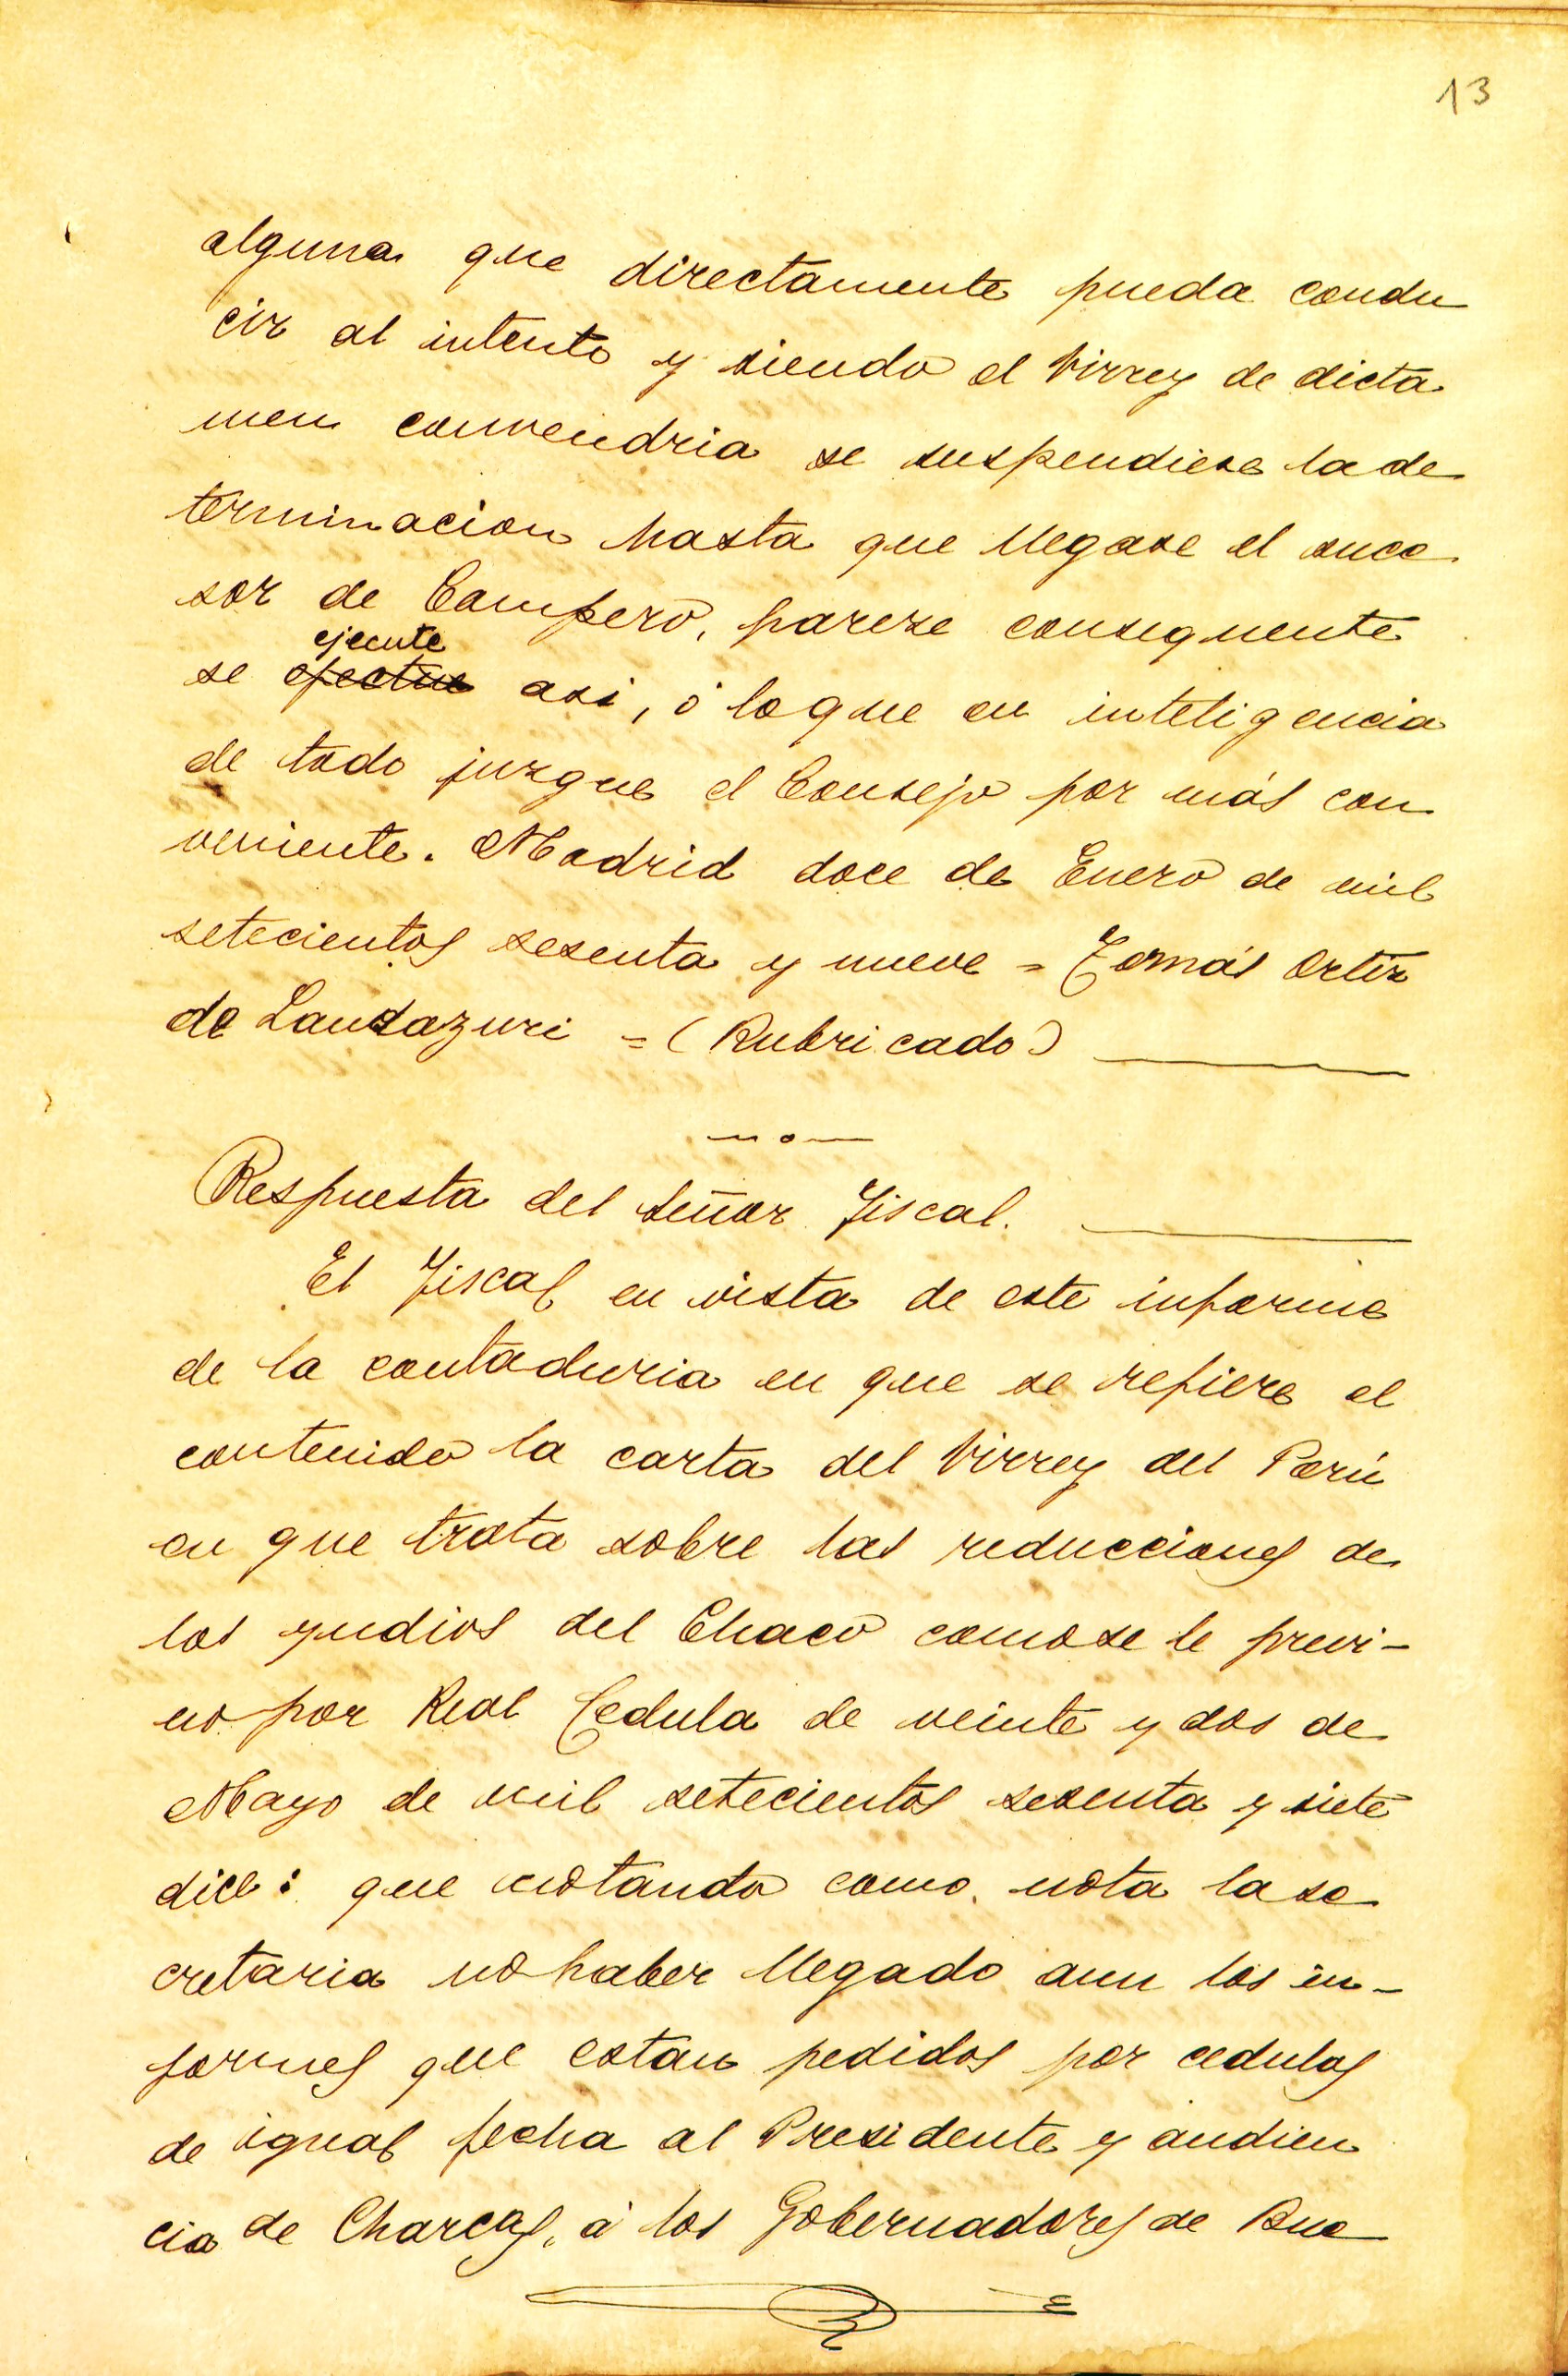 13
alguna que directamente pueda condu
cir al intento y siendo el Virrey de dicta
men convendria se suspendiese la de
terminacion hasta que llegase el suce
sor de Campero, pareze consequente
ejecute
se efectue asi, ó loque en inteligencia
de todo juzgue el Consejo por más con
veniente. Madrid doce de Enero de mil
setecientos sesenta y nueve = Tomás Ortiz
de Landazuri = (Rubricado)
Respuesta del Señor Fiscal.
El Fiscal en vista de este informe
de la contaduria en que se refiere el
contenido la carta del Virrey del Perú
en que trata sobre las reducciones de
los yndios del Chaco comose le previ-
no por Real Cedula de veinte y dos de
Mayo de mil setecientos sesenta y siete
dice: que notando como nota la se
cretaria no haber llegado aun los in-
formes que estan pedidos por cedulas
de igual fecha al Presidente y audien
cia de Charcas, á los Gobernadores de Bue